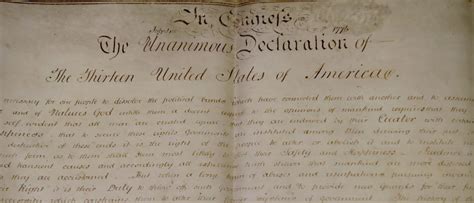 In Congress
1776
The Unanimous Declaration of
The Thirteen United States of America.
necessary for one people to dissolve the political bands which have connected them with another and to assume
and of Natures God a decent respect to the opinions of mankind requires that they
self evident that all men are created equal they are endowed by their Creator with certain
that to secure these rights Governments are instituted among Men deriving their just
destructive of these ends it is the right of the to alter or abolish it and to institute
such form as to them shall seem most likely to their Safety and Happiness. Prudence
and transient causes and accordingly all experience shewn that mankind are more
they are accustomed But when a long train of abuses and usurpations pursuing
their Right it is their Duty to throw off such Government and to provide new Guards for their
necessity which constrains them to alter their The history of